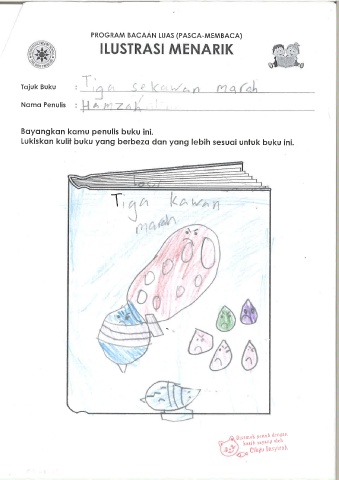 PROGRAM BACAAN LUAS (PASCA-MEMBACA)
ILUSTRASI MENARIK
Tajuk Buku : Tiga sekawan marah
Nama Penulis : Hamzah
Bayangkan kamu penulis buku ini.
Lukiskan kulit buku yang berbeza dan yang lebih sesuai untuk buku ini.
Tiga kawan
marah